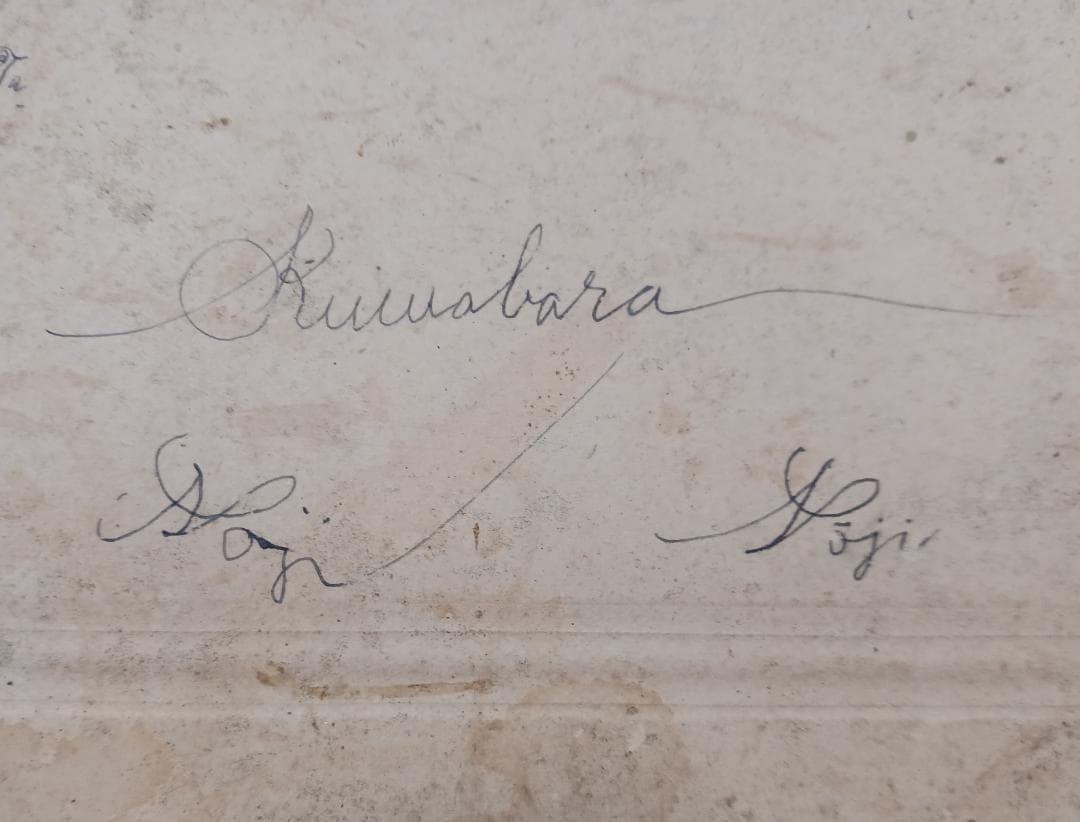 Kuwabara
Sōji Sōji